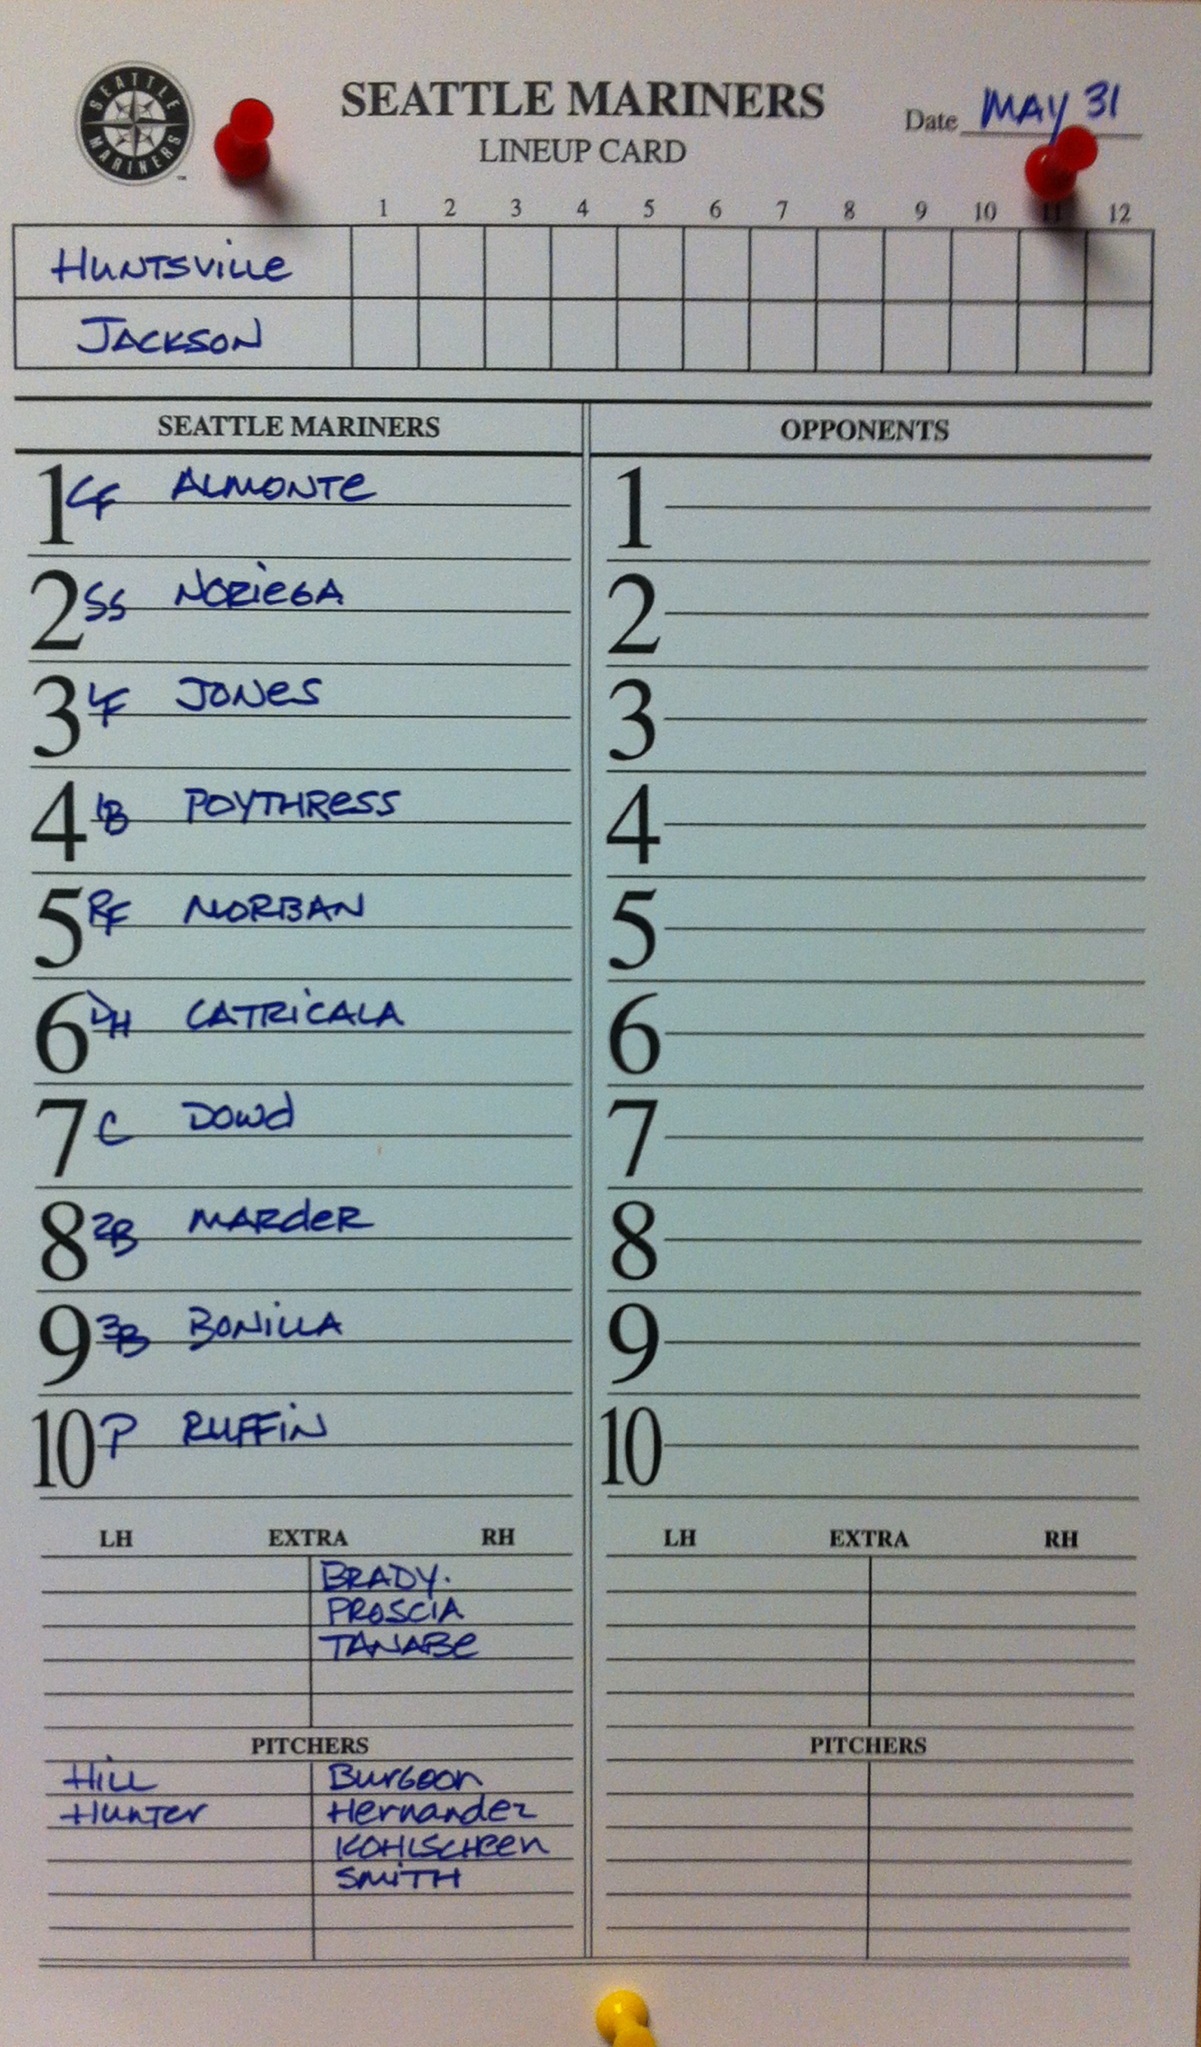 SEATTLE MARINERS
SEATTLE MARINERS
™
LINEUP CARD
Date MAY 31
1 2 3 4 5 6 7 8 9 10 11 12
HUNTSViLLe
JACKSON
SEATTLE MARINERS
OPPONENTS
1 CF ALMONTe
2 SS NORiEGA
3 LF JONeS
4 1B POYTHReSS
5 RF MORBAN
6 DH CATRiCALA
7 C DOWd
8 2B MARdeR
9 3B BONiLLA
10 P RUFFiN
1
2
3
4
5
6
7
8
9
10
LH EXTRA RH
BRADY.
PROSCIA
TANABe
PITCHERS
HiLL Burgoon
HunTer Hernandez
KOHLSCHeen
SMiTH
LH EXTRA RH
PITCHERS